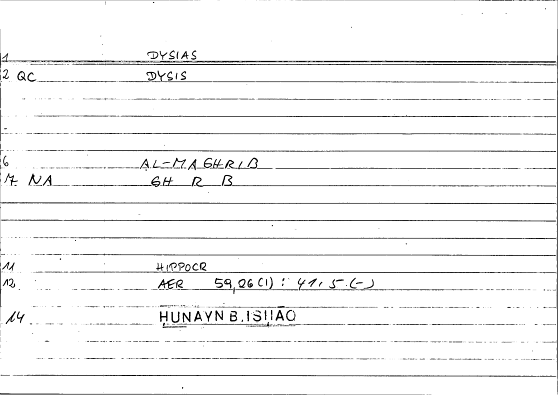 1 DYSIAS
2 QC DYSIS
6 AL-MAGHRIB
7 NA GH R B
11 HIPPOCR
12 AER 59,26(1) : 41,5 (-)
14 ḤUNAYN B. ISḤĀQ